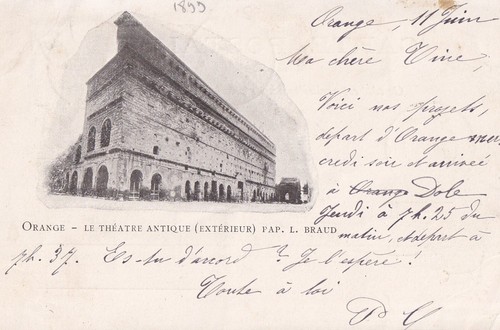 1899
Orange, 11 Juin
Ma chère Tine,
Voici nos projets,
départ d'Orange mer
credi soir et arrivée
à Orange Dole
Jeudi à 7h.25 du
matin, et départ à
7h.37. Es-tu d'accord ? Je l'espère !
Toute à toi
ORANGE - LE THÉATRE ANTIQUE (EXTÉRIEUR) PAP. L. BRAUD